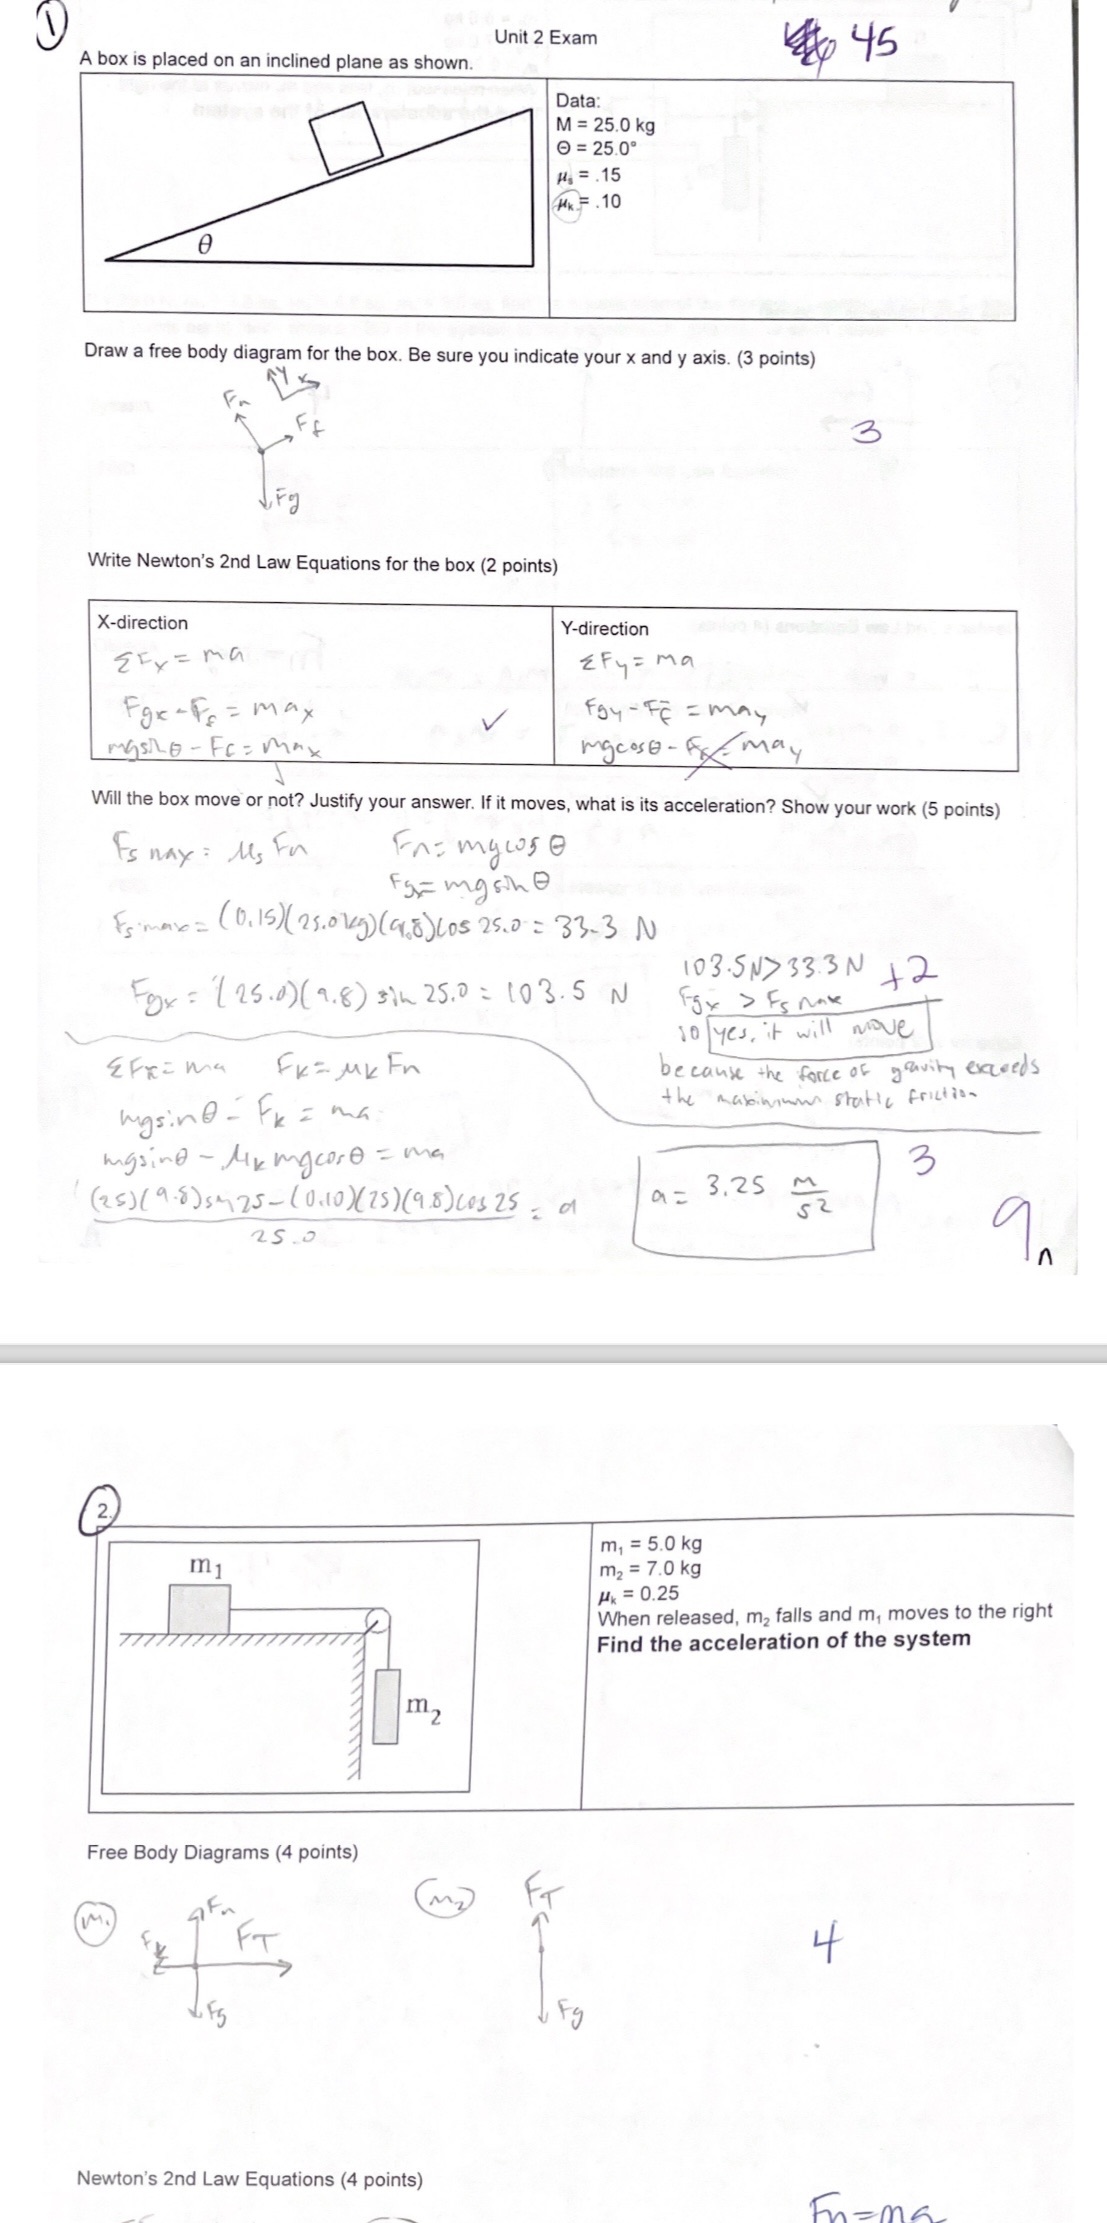 1
Unit 2 Exam
45
A box is placed on an inclined plane as shown.
θ
Data:
M = 25.0 kg
Θ = 25.0°
μs = .15
μk = .10
Draw a free body diagram for the box. Be sure you indicate your x and y axis. (3 points)
y x
Fn
Ff
Fg
3
Write Newton's 2nd Law Equations for the box (2 points)
X-direction
ΣFx = ma
Fgx - Ff = max
mgsinθ - Ff = max
✓
Y-direction
ΣFy = ma
Fgy - Ff = may
mgcosθ - Ff = may
Will the box move or not? Justify your answer. If it moves, what is its acceleration? Show your work (5 points)
Fs max = μs Fn
Fn = mgcosθ
Fgx = mgsinθ
Fs max = (0.15)(25.0kg)(9.8)cos 25.0 = 33.3 N
Fgx = (25.0)(9.8) sin 25.0 = 103.5 N
103.5N > 33.3N +2
Fgx > Fs max
so yes, it will move
because the force of gravity exceeds
the maximum static friction
ΣFx = ma Fk = μk Fn
mgsinθ - Fk = ma
mgsinθ - μk mgcosθ = ma
(25)(9.8)sin 25 - (0.10)(25)(9.8)cos 25 = a
25.0
a = 3.25 m/s²
3
9
2.
m1
m2
m₁ = 5.0 kg
m₂ = 7.0 kg
μk = 0.25
When released, m₂ falls and m₁ moves to the right
Find the acceleration of the system
Free Body Diagrams (4 points)
m1
Fn
Fk
FT
Fg
m2
FT
Fg
4
Newton's 2nd Law Equations (4 points)